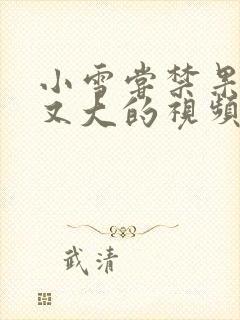 小雪嘗禁果
又大的視頻
武清